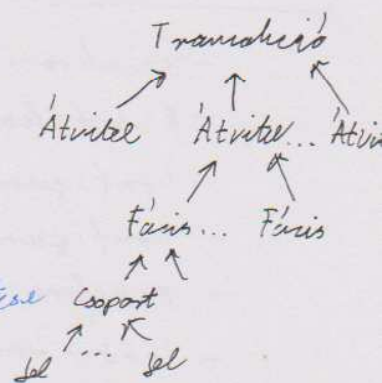 Tranzakció
Átvitel Átvitel... Átvi
Fázis... Fázis
Csoport
Jel ... Jel